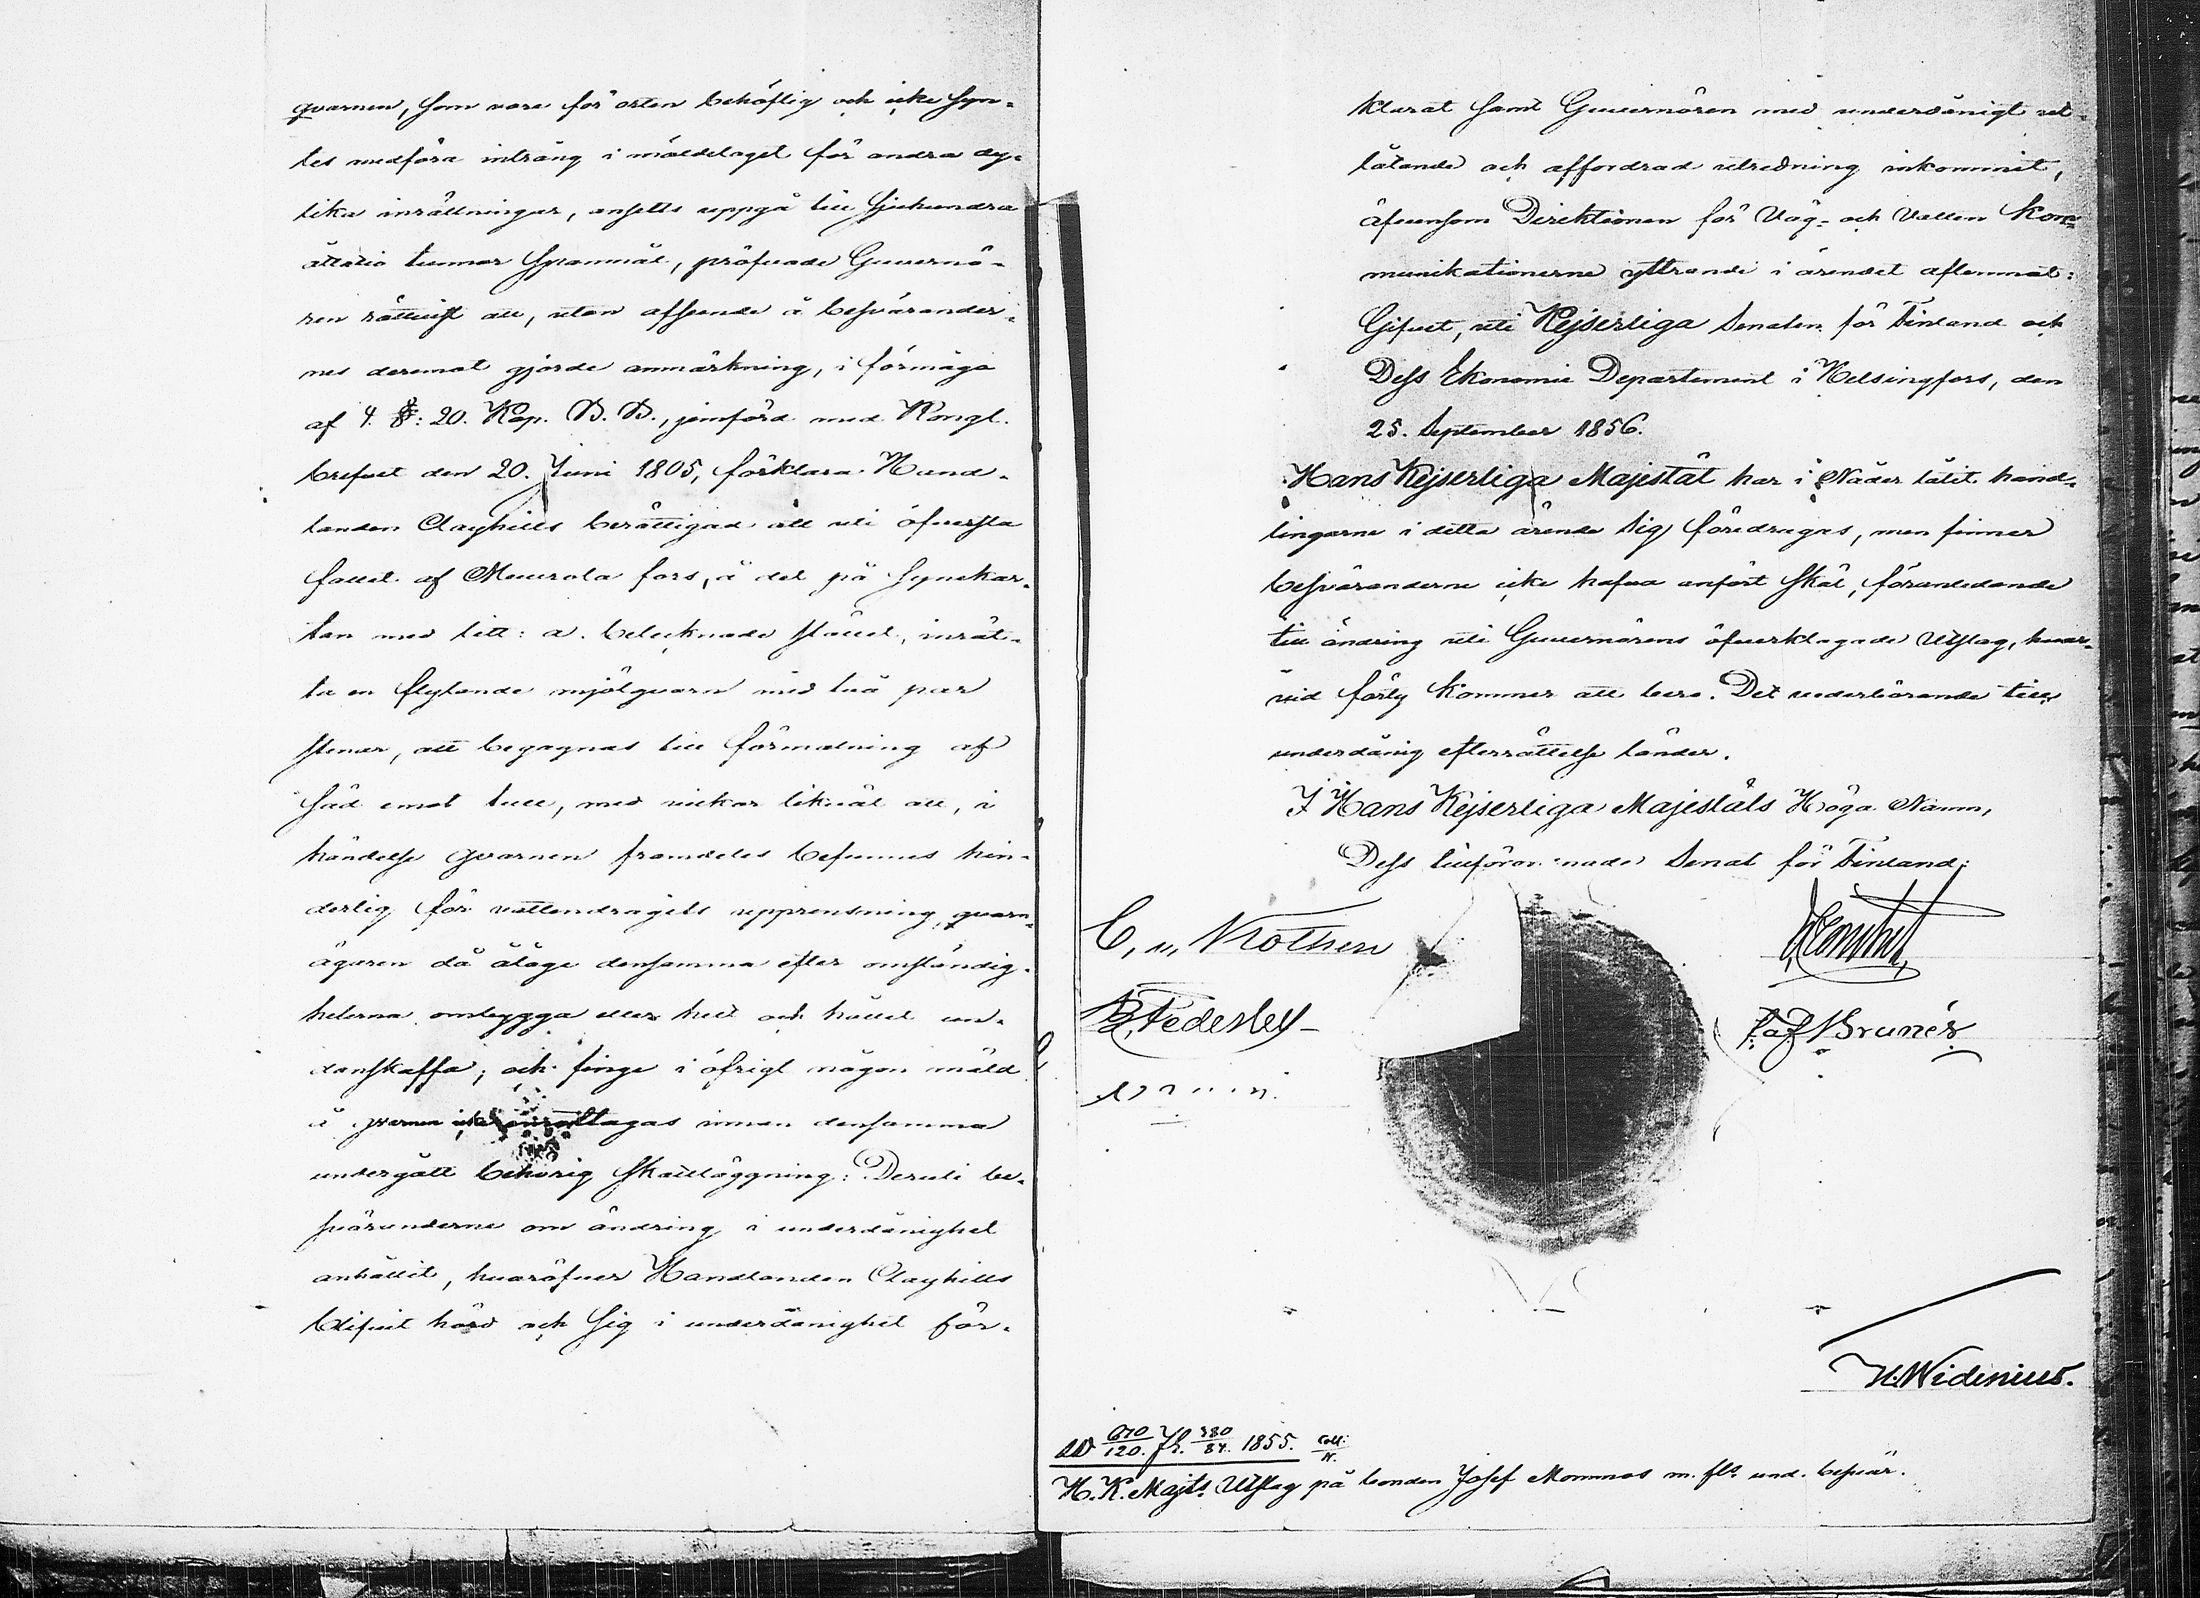 qvarnen, som vore för orten behöflig och icke syn-
tes medföra intrång i mäldelaget för andra dy-
lika inrättningar, ansetts uppgå till sjuhundra
åttatio tunnor spanmål, pröfvade Guvernö-
ren rättvist att, utan afseende å besvärander-
nes deremot gjorde anmärkning, i förmåga
af 4. §: 20. Kap. B. B., jemförd med Kongl.
brefvet den 20. Juni 1805, förklara Hand-
landen Clayhills berättigad att uti öfversta
fallet af Meurola fors, å det på synekar-
tan med litt: a. betecknade stället, inrät-
ta en flytande mjölqvarn med två par
stenar, att begagnas till förmalning af
säd emot tull, med vilkor likväl att, i
händelse qvarnen framdeles befunnes hin-
derlig för vattendragets upprensning, qvarn-
ägaren då ålåge densamma efter omständig-
heterna ombygga eller helt och hållet un-
danskaffa; och finge i öfrigt någon mäld
å qvarnen icke emottagas innan densamma
undergått behörig skattläggning: Deruti be-
sväranderne om ändring i underdånighet
anhållit, hvaröfver Handlanden Clayhills
blifvit hörd och sig i underdånighet för-
klarat samt Guvernören med underdånigt ut-
låtande och affordrad utredning inkommit,
äfvensom Direktionen för Väg- och Vatten Kom-
munikationerne yttrande i ärendet aflemnat:
Gifvet, uti Kejserliga Senaten för Finland och
Dess Ekonomie Departement i Helsingfors, den
25. September 1856.
Hans Kejserliga Majestät har i Nåder låtit hand-
lingarne i detta ärende sig föredragas, men finner
besväranderne icke hafva anfört skäl, föranledande
till ändring uti Guvernörens öfverklagade Utslag, hvar-
vid förty kommer att bero. Det vederbörande till
underdånig efterrättelse länder.
I Hans Kejserliga Majestäts Höga Namn,
Dess tillförordnade Senat för Finland:
C. v. Kothen
B. Federley
F. af Brunér
H. Widenius.
AD 670/120. Fh. 380/84. 1855. Coll:
H. K. Majts Utslag på bonden Josef Mommos m. fls und. besvär.